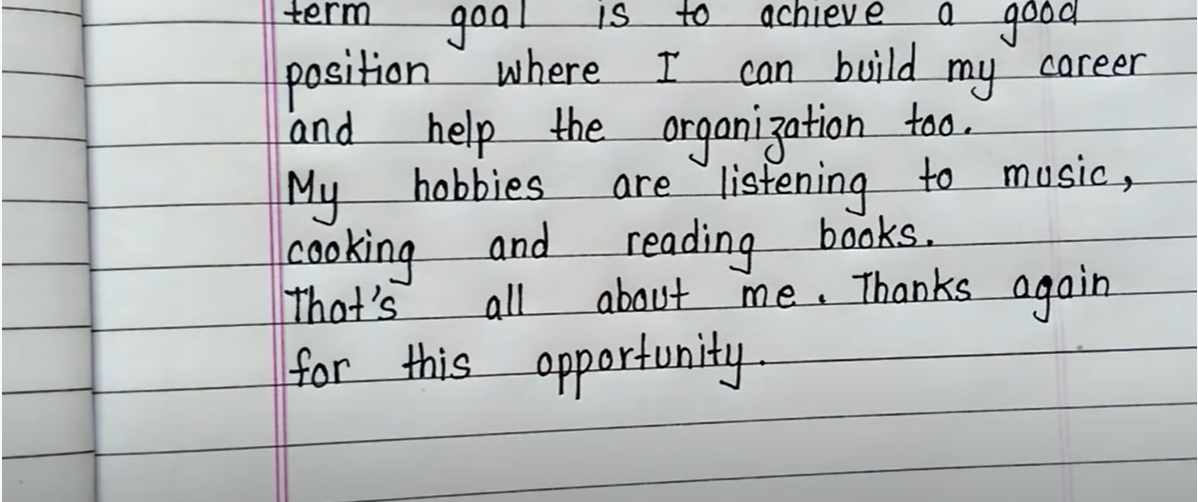 term goal is to achieve a good
position where I can build my career
and help the organization too.
My hobbies are listening to music,
cooking and reading books.
That's all about me. Thanks again
for this opportunity.